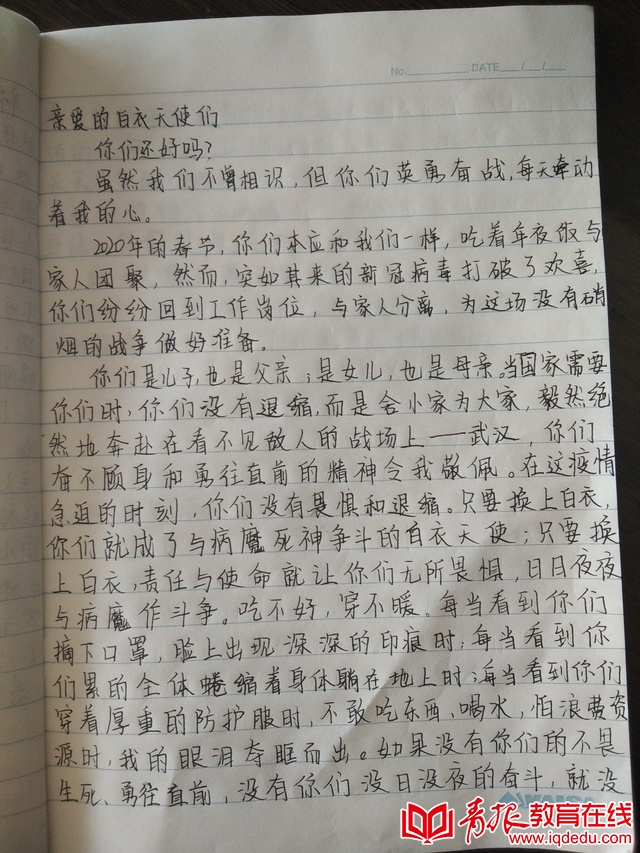 No. DATE / /
亲爱的白衣天使们
你们还好吗?
虽然我们不曾相识,但你们英勇奋战,每天牵动
着我的心。
2020年的春节,你们本应和我们一样,吃着年夜饭与
家人团聚,然而,突如其来的新冠病毒打破了欢喜,
你们纷纷回到工作岗位,与家人分离,为这场没有硝
烟的战争做好准备。
你们是儿子,也是父亲;是女儿,也是母亲。当国家需要
你们时,你们没有退缩,而是舍小家为大家,毅然绝
然地奔赴在看不见敌人的战场上——武汉,你们
奋不顾身和勇往直前的精神令我敬佩。在这疫情
急迫的时刻,你们没有畏惧和退缩。只要换上白衣,
你们就成了与病魔死神争斗的白衣天使;只要换
上白衣,责任与使命就让你们无所畏惧,日日夜夜
与病魔作斗争。吃不好,穿不暖。每当看到你们
摘下口罩,脸上出现深深的印痕时;每当看到你
们累的全体蜷缩着身体躺在地上时;每当看到你们
穿着厚重的防护服时,不敢吃东西、喝水,怕浪费资
源时,我的眼泪夺眶而出。如果没有你们的不畏
生死、勇往直前,没有你们没日没夜的奋斗,就没
青报教育在线
www.iqdedu.com